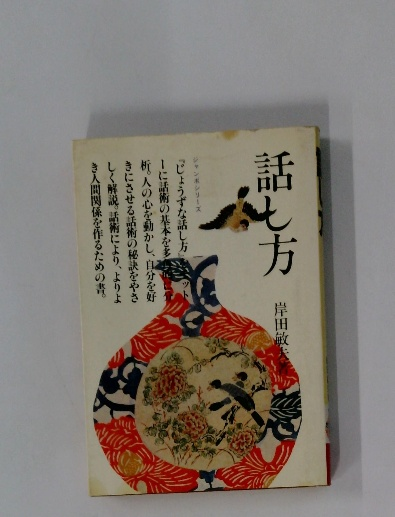 話し方
岸田敏
ジャンボシリーズ
『じょうずな話し方
ーに話術の基本を多
析。人の心を動かし、自分を好
きにさせる話術の秘訣をやさ
しく解説。話術により、よりよ
き人間関係を作るための書。